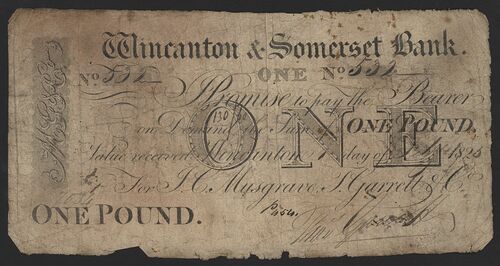 Wincanton & Somerset Bank.
No 532 ONE No 532
I Promise to pay the Bearer
on Demand the Sum of ONE POUND
ONE
130
Value received Wincanton day of 1825
For J.C. Musgrave, J. Garrett & Co.
ONE POUND.